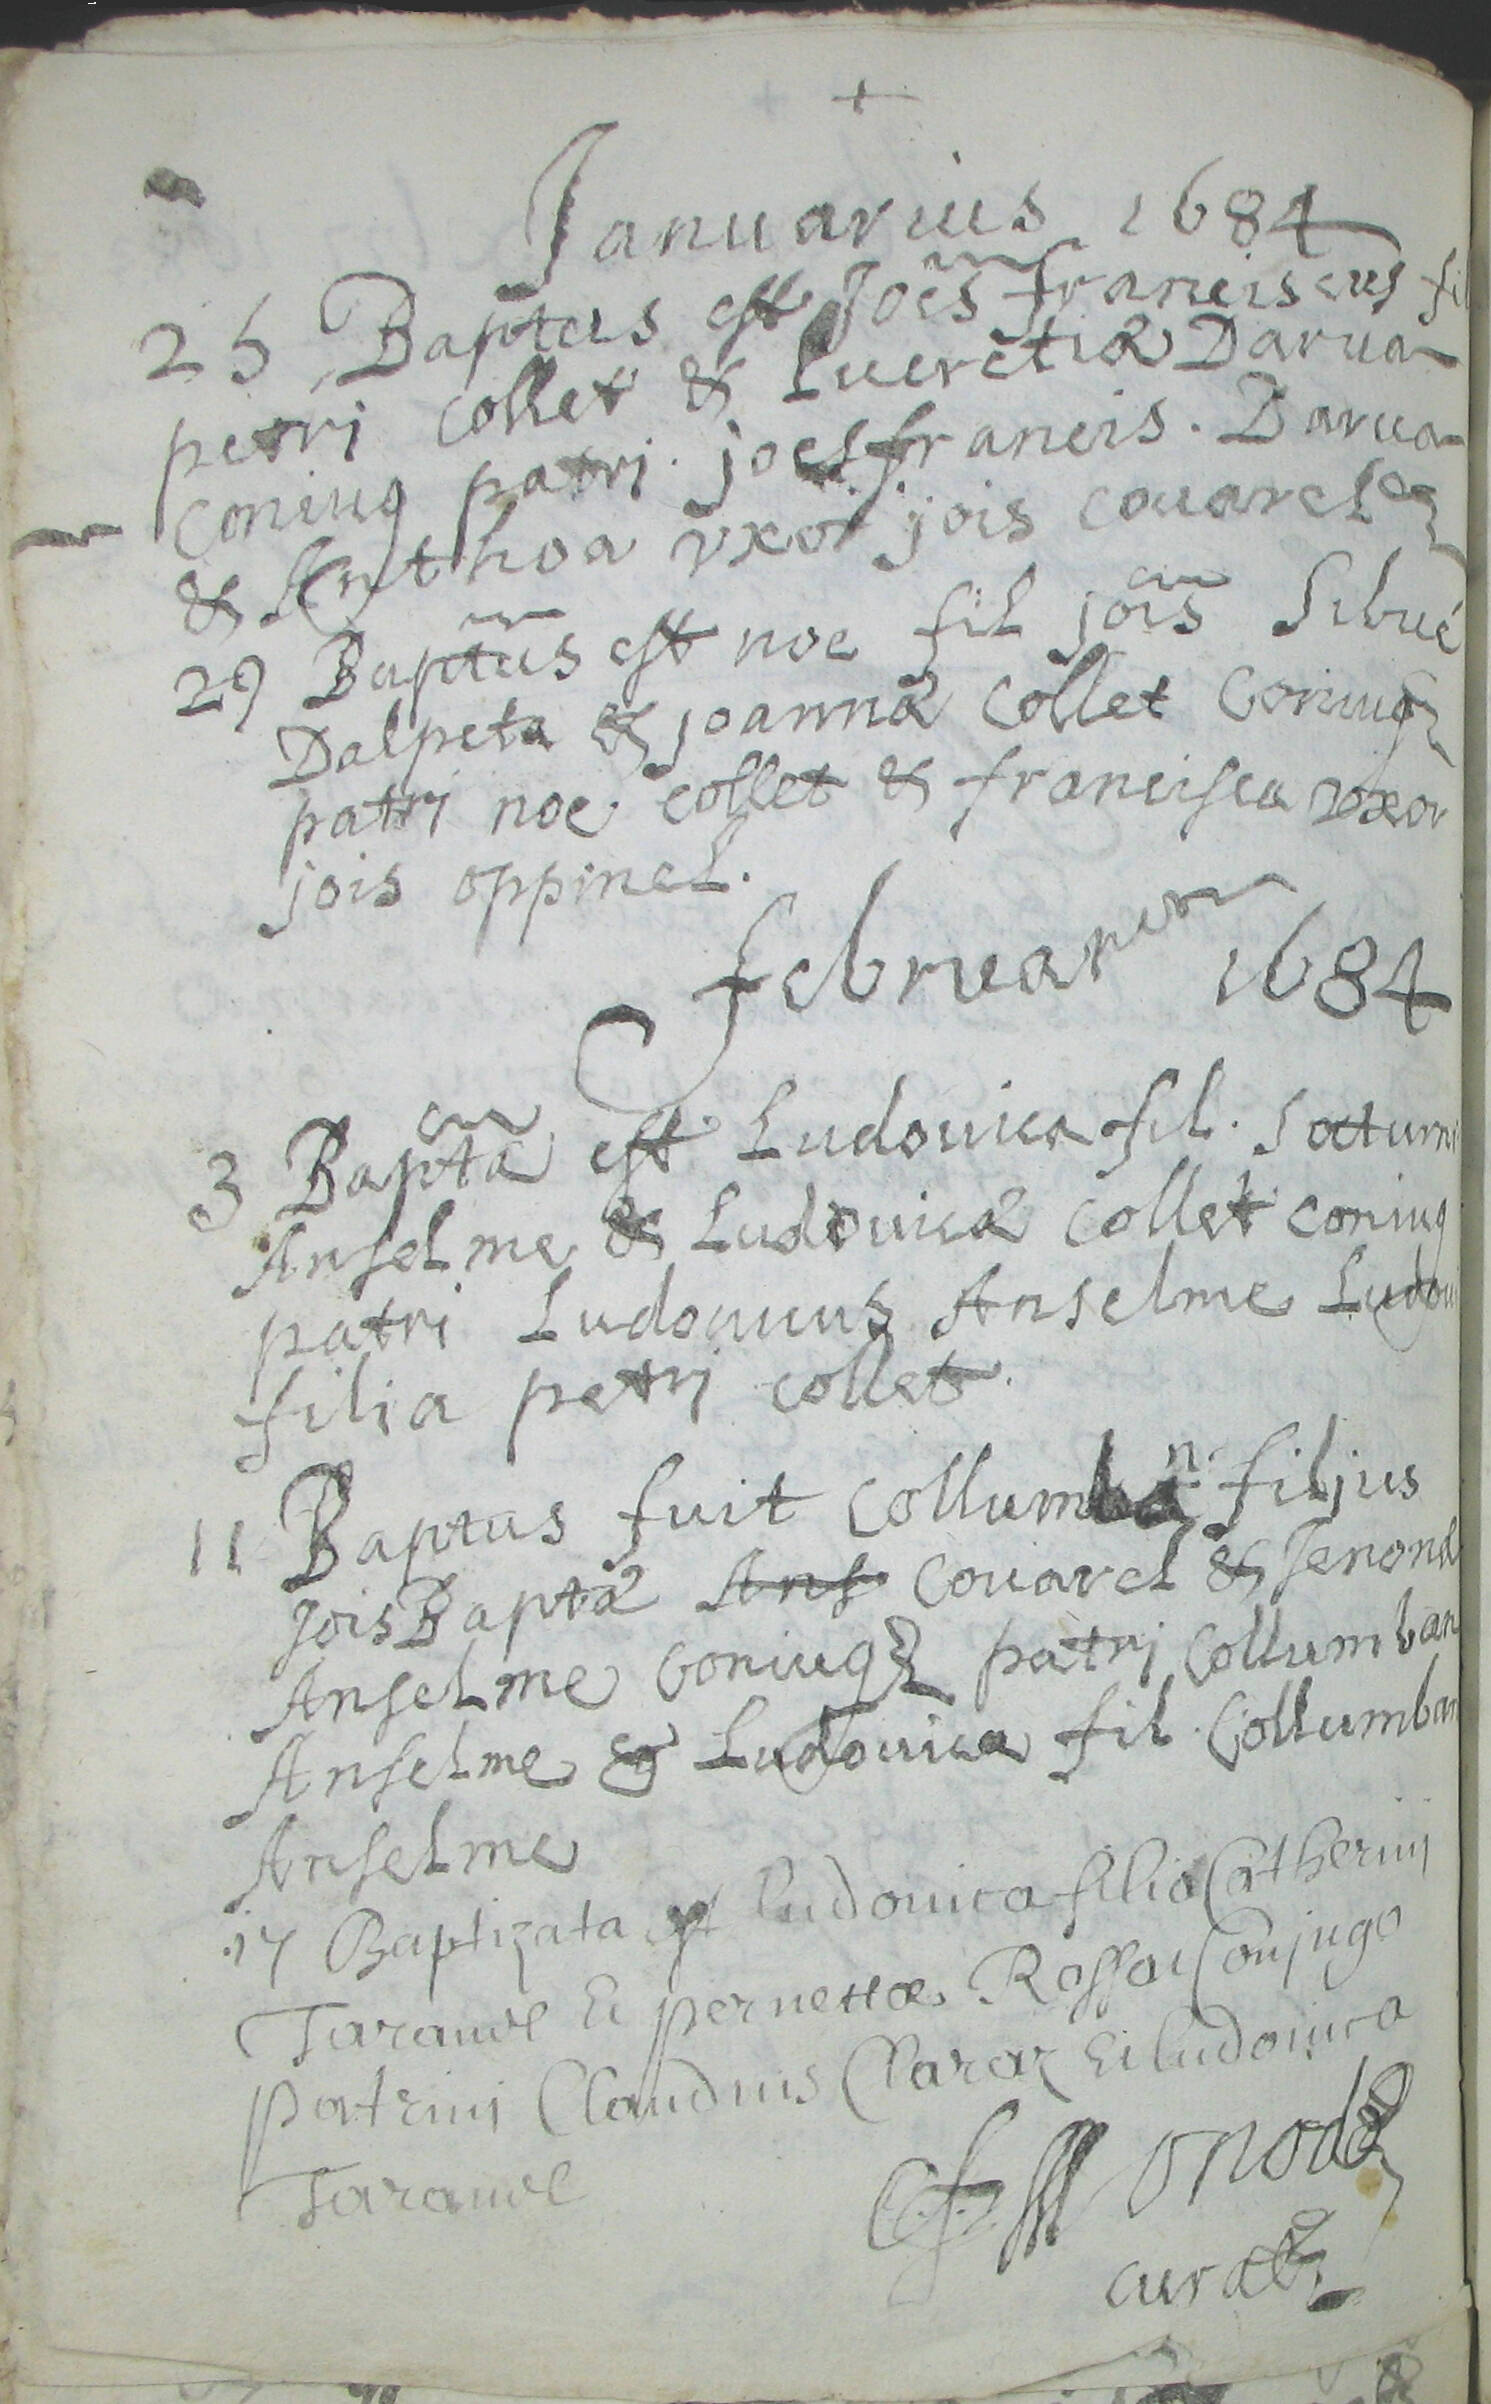 +
Januarius 1684
25 Baptus est Joes franciscus fil
petri Collet & Lucretiæ Darua
Coniug patri. joes francis. Darua
& Anthoa vxor jois Couarel
29 Baptus est noe fil jois Sibué
Dalpeta & joannæ Collet Coniug
patri noe Collet & francisca vxor
jois oppinel.
februarius 1684
3 Bapta est Ludouica fil. Saturni
Anselme & Ludouicæ Collet coniug
patri Ludouicus Anselme Ludoui
filia petri collet.
11 Baptus fuit Collumban filjus
Jois Baptæ Ans Couarel & Jenonæ
Anselme Coniug patrj Collumban
Anselme & Ludouica fil. Collumban
Anselme
17 Baptizata est Ludouica filia Catherini
Tarauel Et pernettæ Rossat Conjugo
Patrini Claudius Claraz Et ludouica
Tarauel
curatus